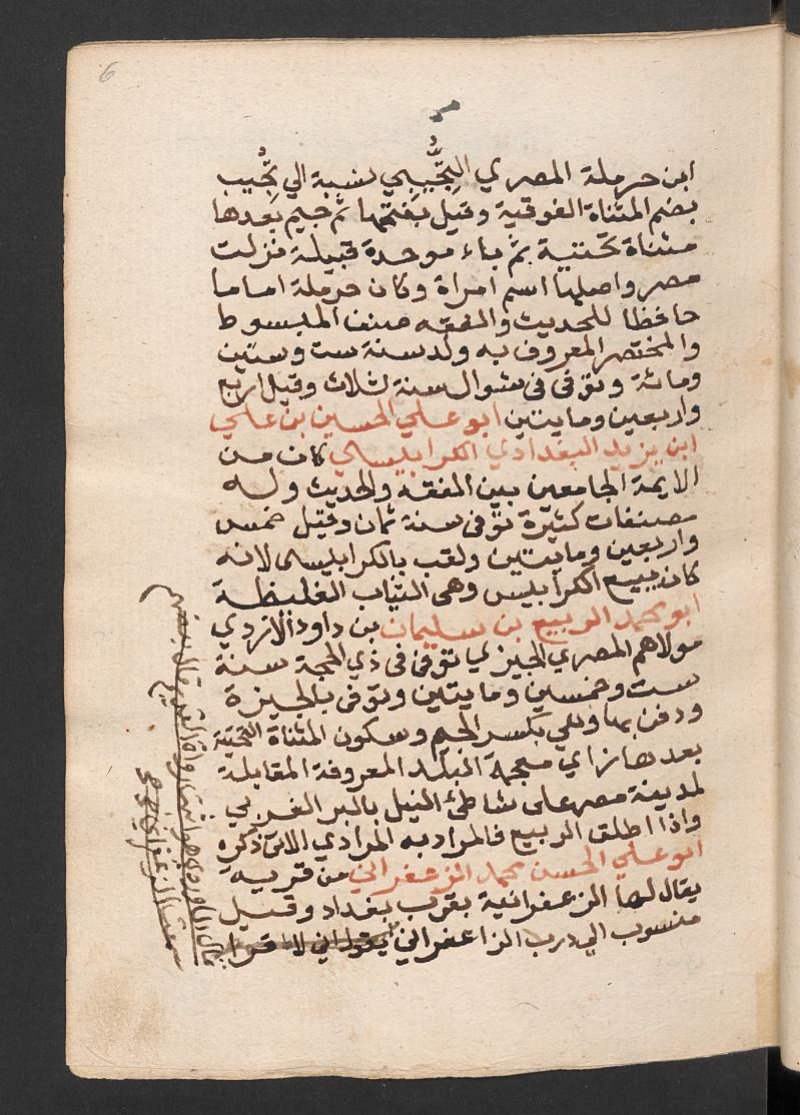 6
ابن حرملة المصري التُّجِيبِي نسبة الي تُجِيب
بضم المثناة الفوقية وقيل بفتحها ثم جيم بعدها
مثناة تحتية ثم باء موحدة قبيلة نزلت
مصر واصلها اسم امراة وكان حرملة اماما
حافظا للحديث والفقه صنف المبسوط
والمختصر المعروف به ولد سنة ست وستين
ومائة وتوفى فى شوال سنة ثلاث وقيل اربع
واربعين ومايتين ابو علي الحسين بن علي
ابن يزيد البغدادي الكرابيسي كان من
الايمة الجامعين بين الفقه والحديث وله
مصنفات كثيرة توفى سنة ثمان وقيل خمس
واربعين ومايتين ولقب بالكرابيسى لانه
كان يبيع الكرابيس وهى الثياب الغليظة
ابو محمد الربيع بن سليمان بن داود الازدي
مولاهم المصري الجيزي توفى فى ذي الحجة سنة
ست وخمسين ومايتين وتوفى بالجيزة
ودفن بها وهي بكسر الجيم وسكون المثناة التحتية
بعدها زاي معجمة البلد المعروفة المقابلة
لمدينة مصر على شاطئ النيل بالبر الغربي
واذا اطلق الربيع فالمراد به المرادي الاتى ذكره
ابو علي الحسن محمد الزعفراني من قرية
يقال لها الزعفرانية بقرب بغداد وقيل
منسوب الي درب الزاعفراني يقول اني لا قرا
قال الماوردي هو اثبت رواة القديم قال بعضهم
سمعت الزعفراني